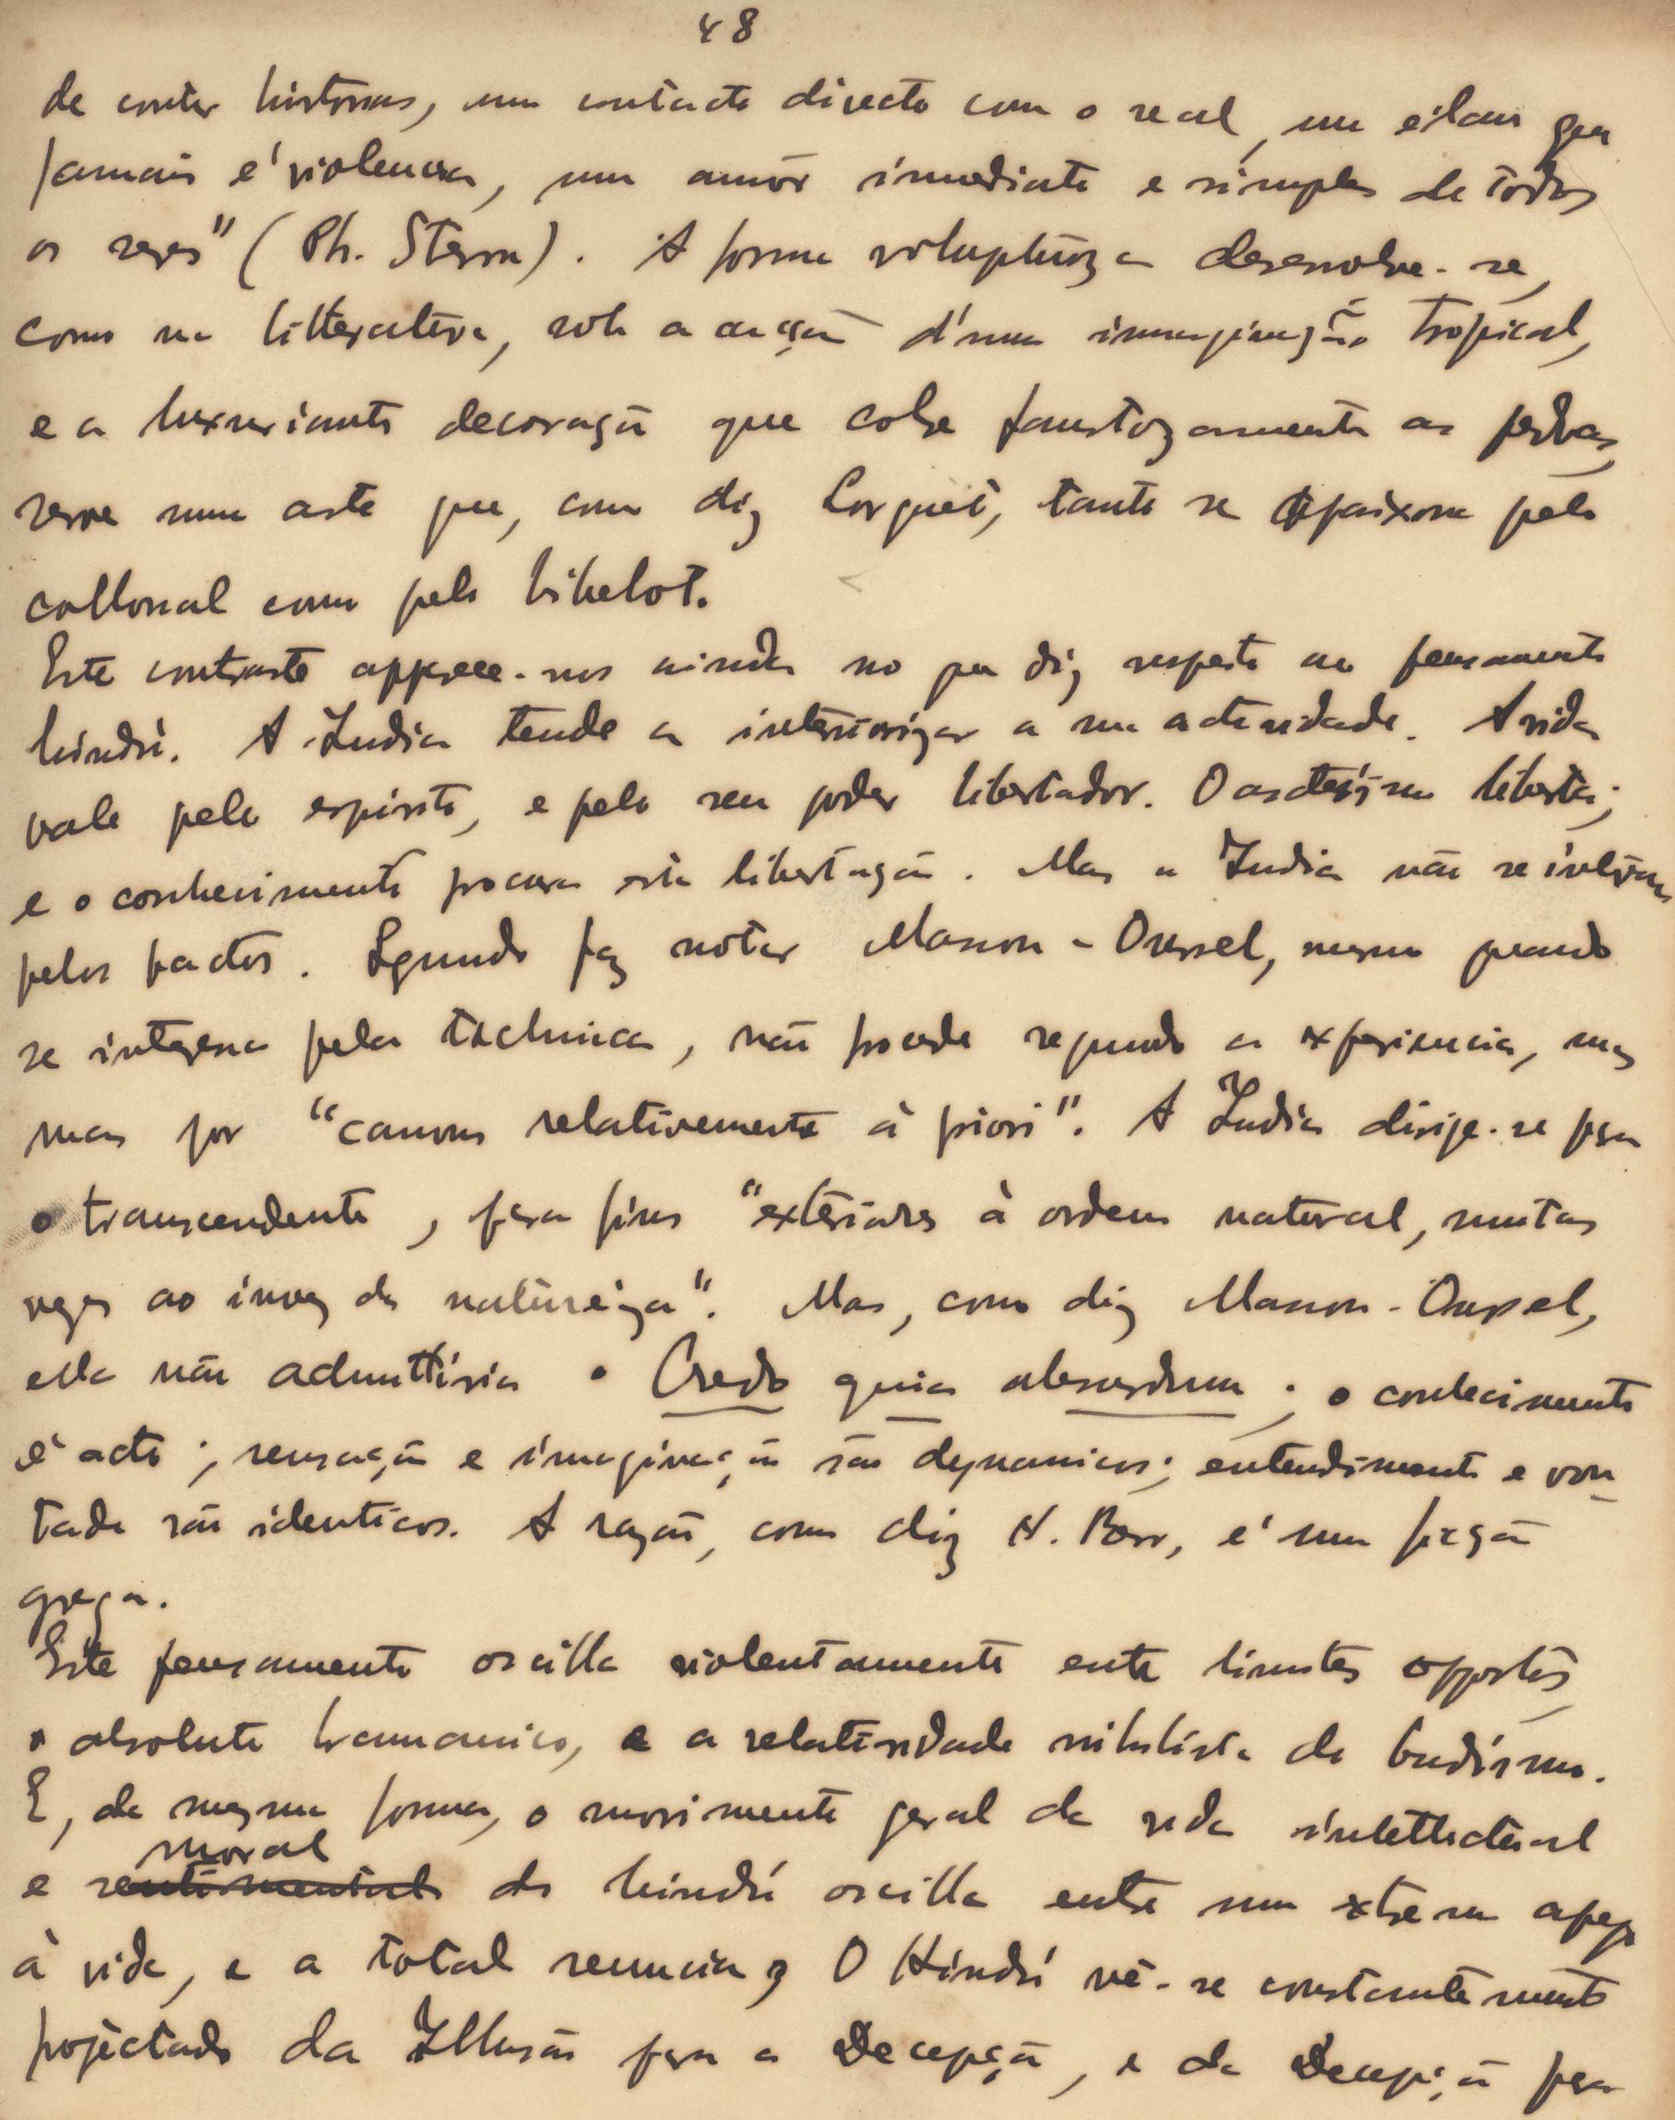 48
de contar historias, um contacto directo com o real, um élan que
jamais é violencia, um amôr immediato e simples de todos
os seres" (Ph. Stern). A forma voluptuoza desenvolve-se,
como na litteratura, sob a acção d'uma immaginação tropical,
e a luxuriante decoração que cobre faustozamente as pedras,
serve uma arte que, como diz Lorquet, tanto se apaixona pelo
collossal como pelo bibelot.
Este contraste apparece-nos ainda no que diz respeito ao pensamento
hindú. A India tende a interiorizar a sua actividade. A vida
vale pelo espirito, e pelo seu poder libertador. O ascetismo liberta;
e o conhecimento procura esta libertação. Mas a India não se interessa
pelos factos. Segundo faz notar Masson-Oursel, mesmo quando
se interessa pela technica, não procede segundo a experiencia, mas
mas por "canons relativement à priori". A India dirige-se para
o transcendente, para fins "exteriores à ordem natural, muitas
vezes ao invez da naturêza". Mas, como diz Masson-Oursel,
ella não admittiria o Credo quia absurdum; o conhecimento
é acto; sensação e imaginação são dynamicos; entendimento e von-
tade são identicos. A razão, como diz H. Berr, é uma ficção
grega.
Este pensamento oscilla violentamente entre limites oppostos,
o absoluto bramanico, e a relatividade nihilista do budismo.
E, da mesma forma, o movimento geral da vida intellectual
moral
e sentimental do hindú oscilla entre um extremo apego
à vida, e a total renuncia, O Hindú vê-se constantemente
projectado da Illusão para a Decepção, e da Decepção para